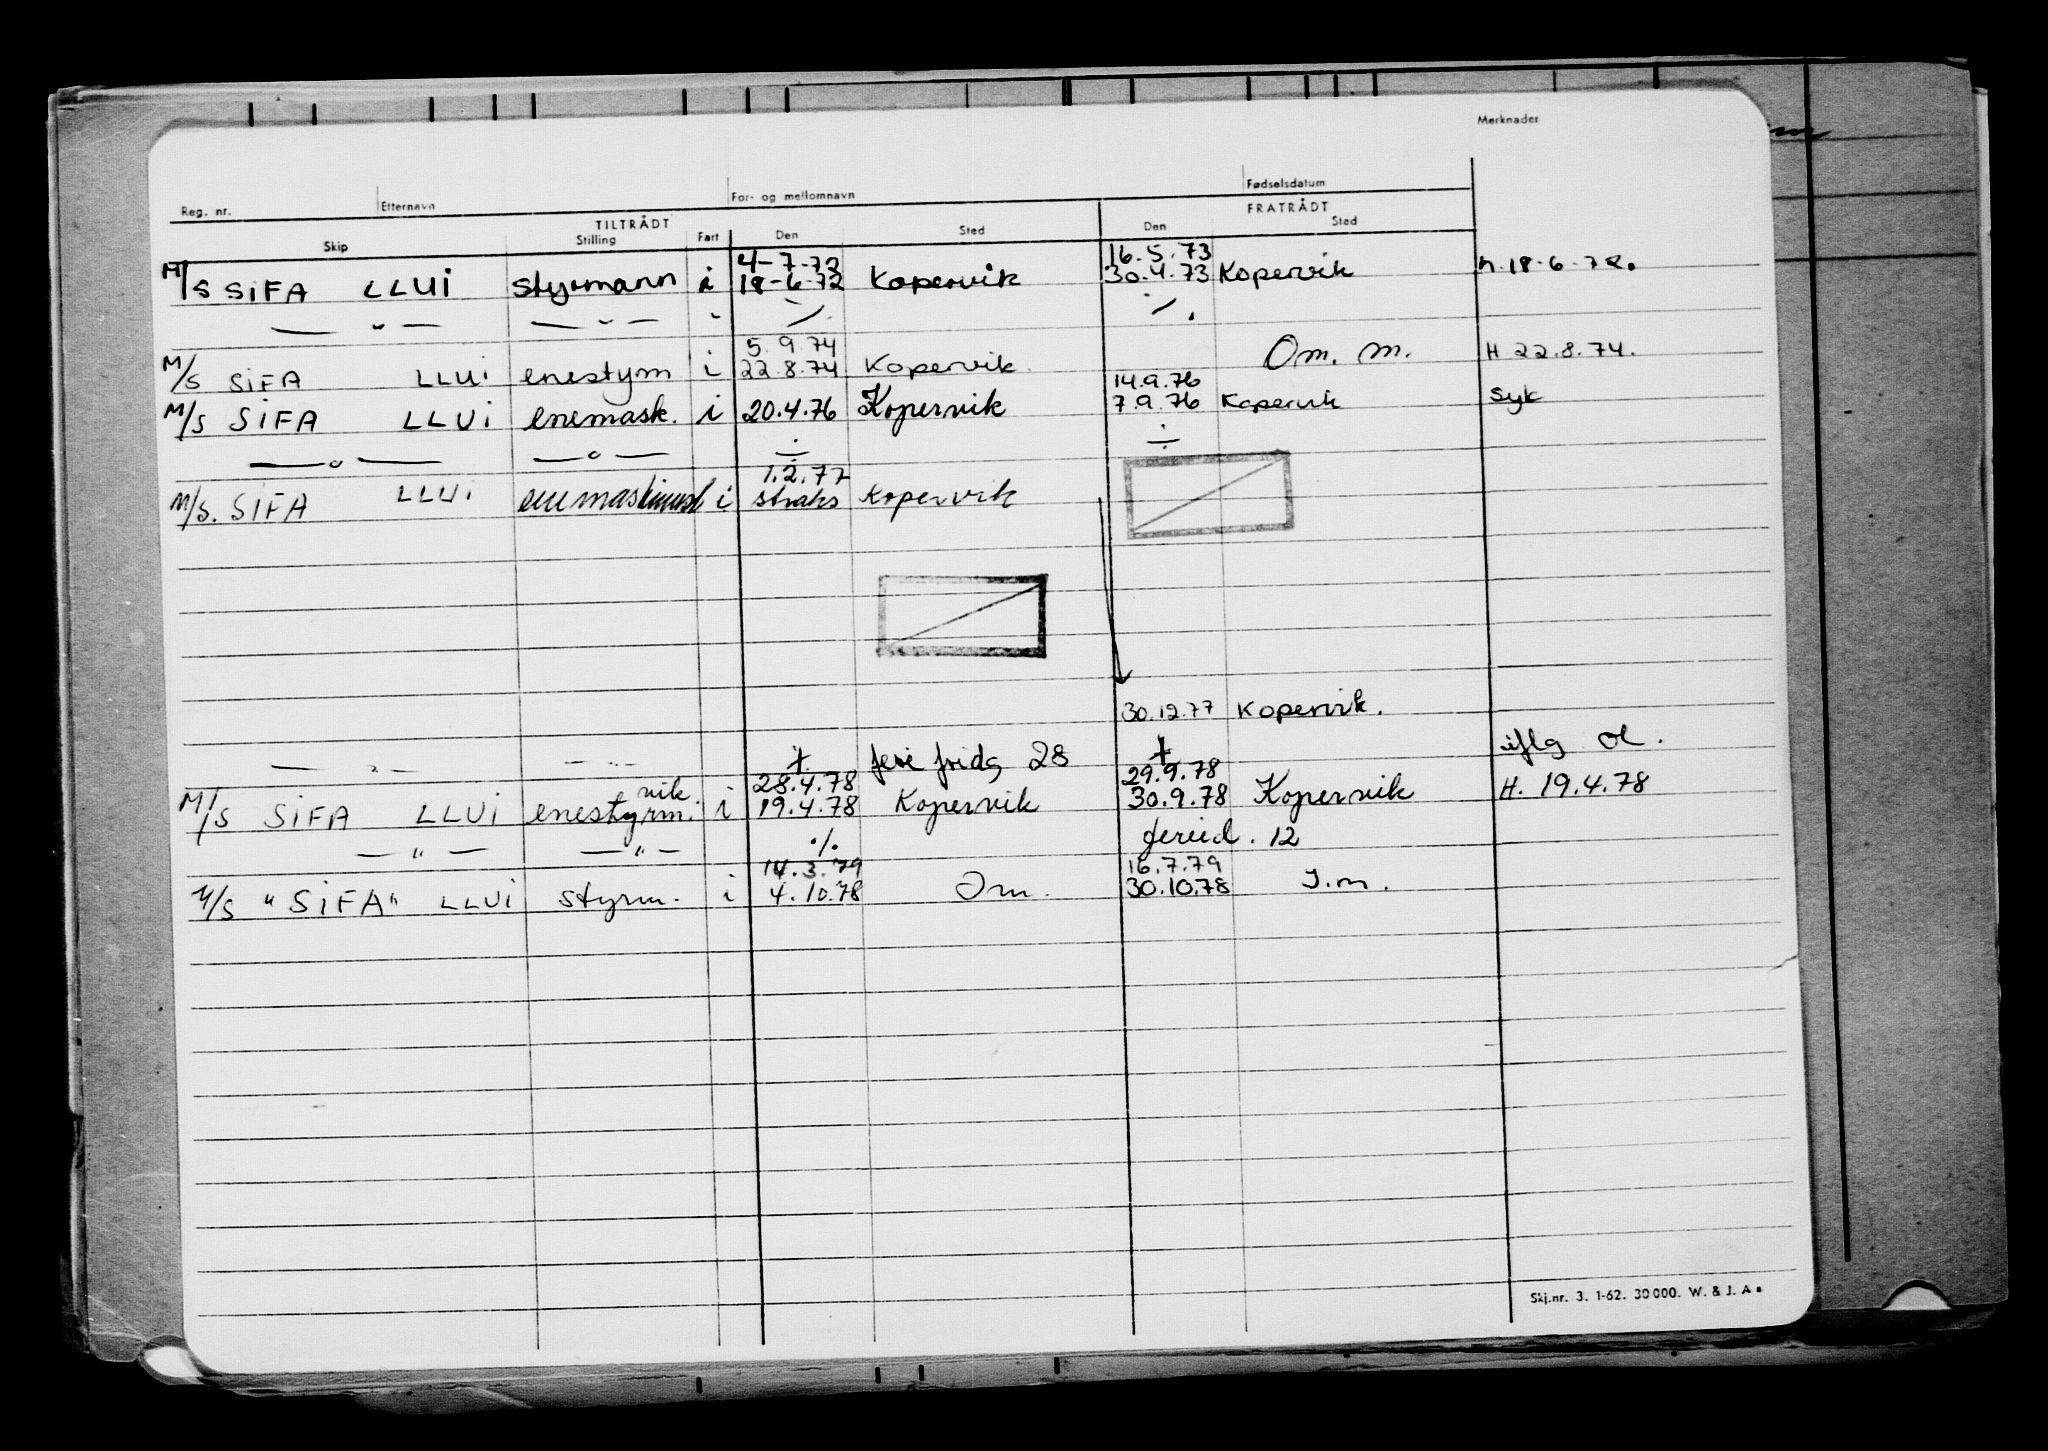 Merknader
Reg. nr. Etternavn For- og mellomnavn Fødselsdatum
TILTRÅDT FRATRÅDT
Skip Stilling Fart Den Sted Den Sted
4-7-72 16.5.73
M/S SIFA LLUI styrmann i 18-6-72 Kopervik 30.4.73 Kopervik h.18-6-72.
— " — — " — " ·/. ·/.
5.9.74
M/S SIFA LLUI enestyrm i 22.8.74 Kopervik. Om. m. H 22.8.74.
14.9.76
M/S SIFA LLUI enemask. i 20.4.76 Kopervik 7.9.76 Kopervik Syk
— " — — " — ÷ ÷
1.2.77
M/S. SIFA LLUI enemaskinist i straks Kopervik
30.12.77 Kopervik.
— " — — " — ferie fridg 28 iflg
28.4.78 29.9.78
M/S SIFA LLUI vik. enestyrm. i 19.4.78 Kopervik 30.9.78 Kopervik H. 19.4.78
— " — — " — ·/. 12
14.3.79 16.7.79
M/S "SIFA" LLUI styrm. i 4.10.78 Om. 30.10.78 J.m.
Skj.nr. 3. 1-62. 30 000. W. & J. A s